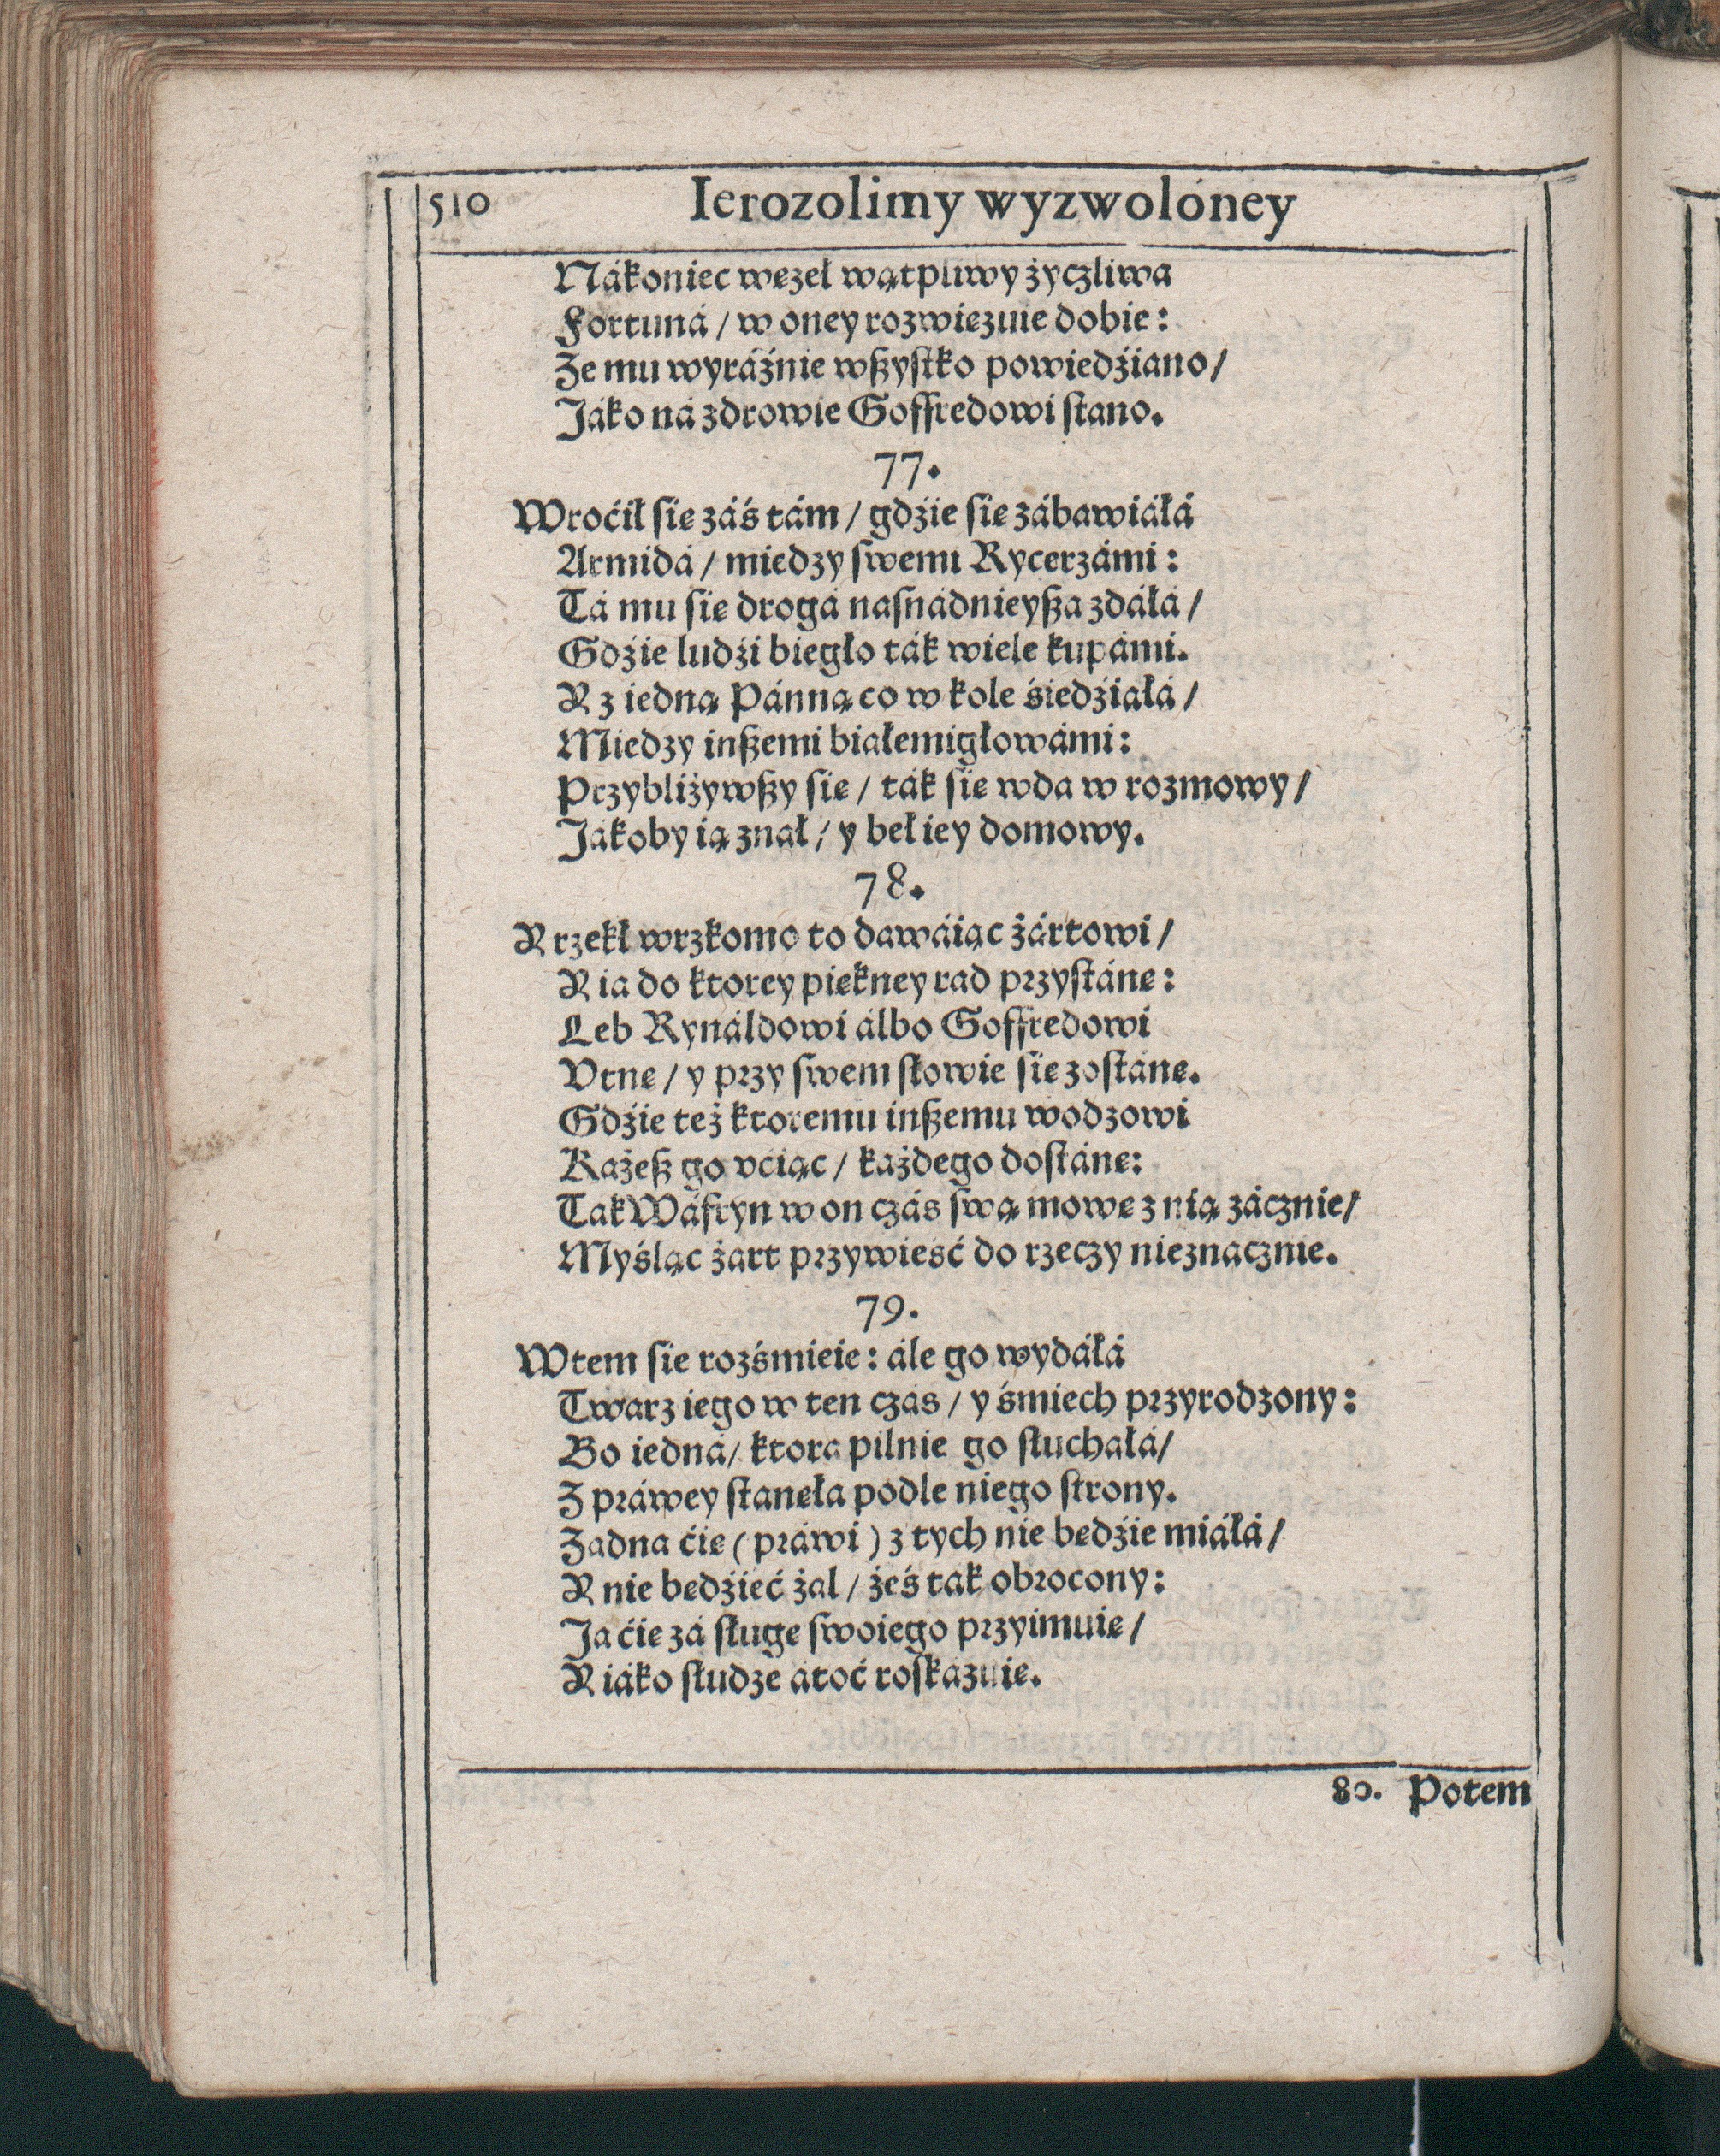 510 Ierozolimy wyzwolóney
Nákoniec węzeł wątpliwy życzliwa
Fortuná / w oney rozwięzuie dobie:
Że mu wyráźnie wßyſtko powiedźiano /
Jáko ná zdrowie Goffredowi ſtano.
77.
Wroćił ſię záś tám / gdźie ſię zábawiáłá
Armidá / między ſwemi Rycerzámi:
Tá mu ſię drogá naſnádnieyßa zdáłá /
Gdźie ludźi biegło ták wiele kupámi.
Y z iedną Pánną co w kole śiedźiałá /
Miedzy inßemi białemigłowámi:
Przybliżywßy ſię / ták ſię wda w rozmowy /
Jákoby ią znał / y beł iey domowy.
78.
Y rzekł wrzkomo to dawáiąc żártowi /
Y ia do ktorey piękney rad przyſtánę:
Łeb Rynáldowi álbo Goffredowi
Vtnę / y przy ſwem ſłowie ſię zoſtánę.
Gdźie też ktoremu inßemu wodzowi
Każeß go vciąc / każdego doſtánę:
Tak Wáfryn w on czás ſwą mowę z nią zácznie /
Myśląc żart przywieść do rzeczy nieznacznie.
79.
Wtem ſię rozśmieie: ále go wydáłá
Twarz iego w ten czás / y śmiech przyrodzony:
Bo iedná / ktora pilnie go ſłuchałá /
Z práwey ſtanęła podle niego ſtrony.
Żadna ćię (práwi) z tych nie będźie miáłá /
Y nie będźieć żal / żeś tak obrocony:
Ja ćię zá ſługę ſwoiego przyimuię /
Y iáko ſłudze átoć roſkázuię.
80. Potem